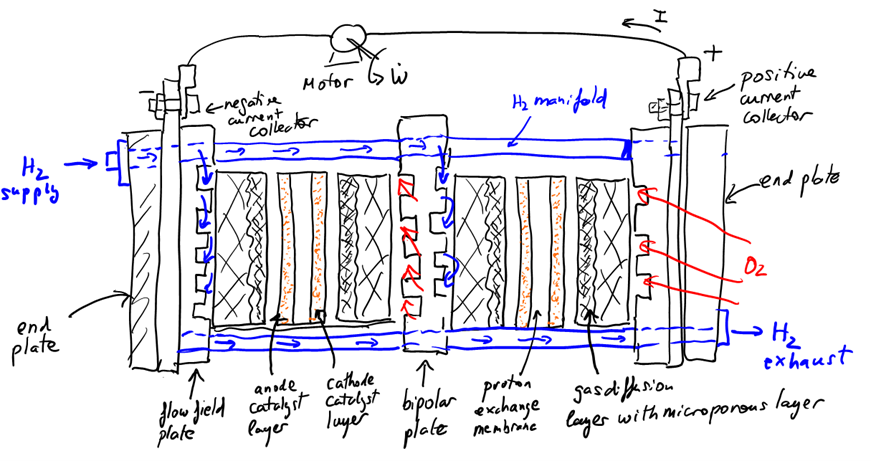 I
+
Motor
Ẇ
negative
current
collector
H₂ manifold
positive
current
collector
H₂
supply
end plate
O₂
end
plate
H₂
exhaust
flow field
plate
anode
catalyst
layer
cathode
catalyst
layer
bipolar
plate
proton
exchange
membrane
gas diffusion
layer with microporous layer